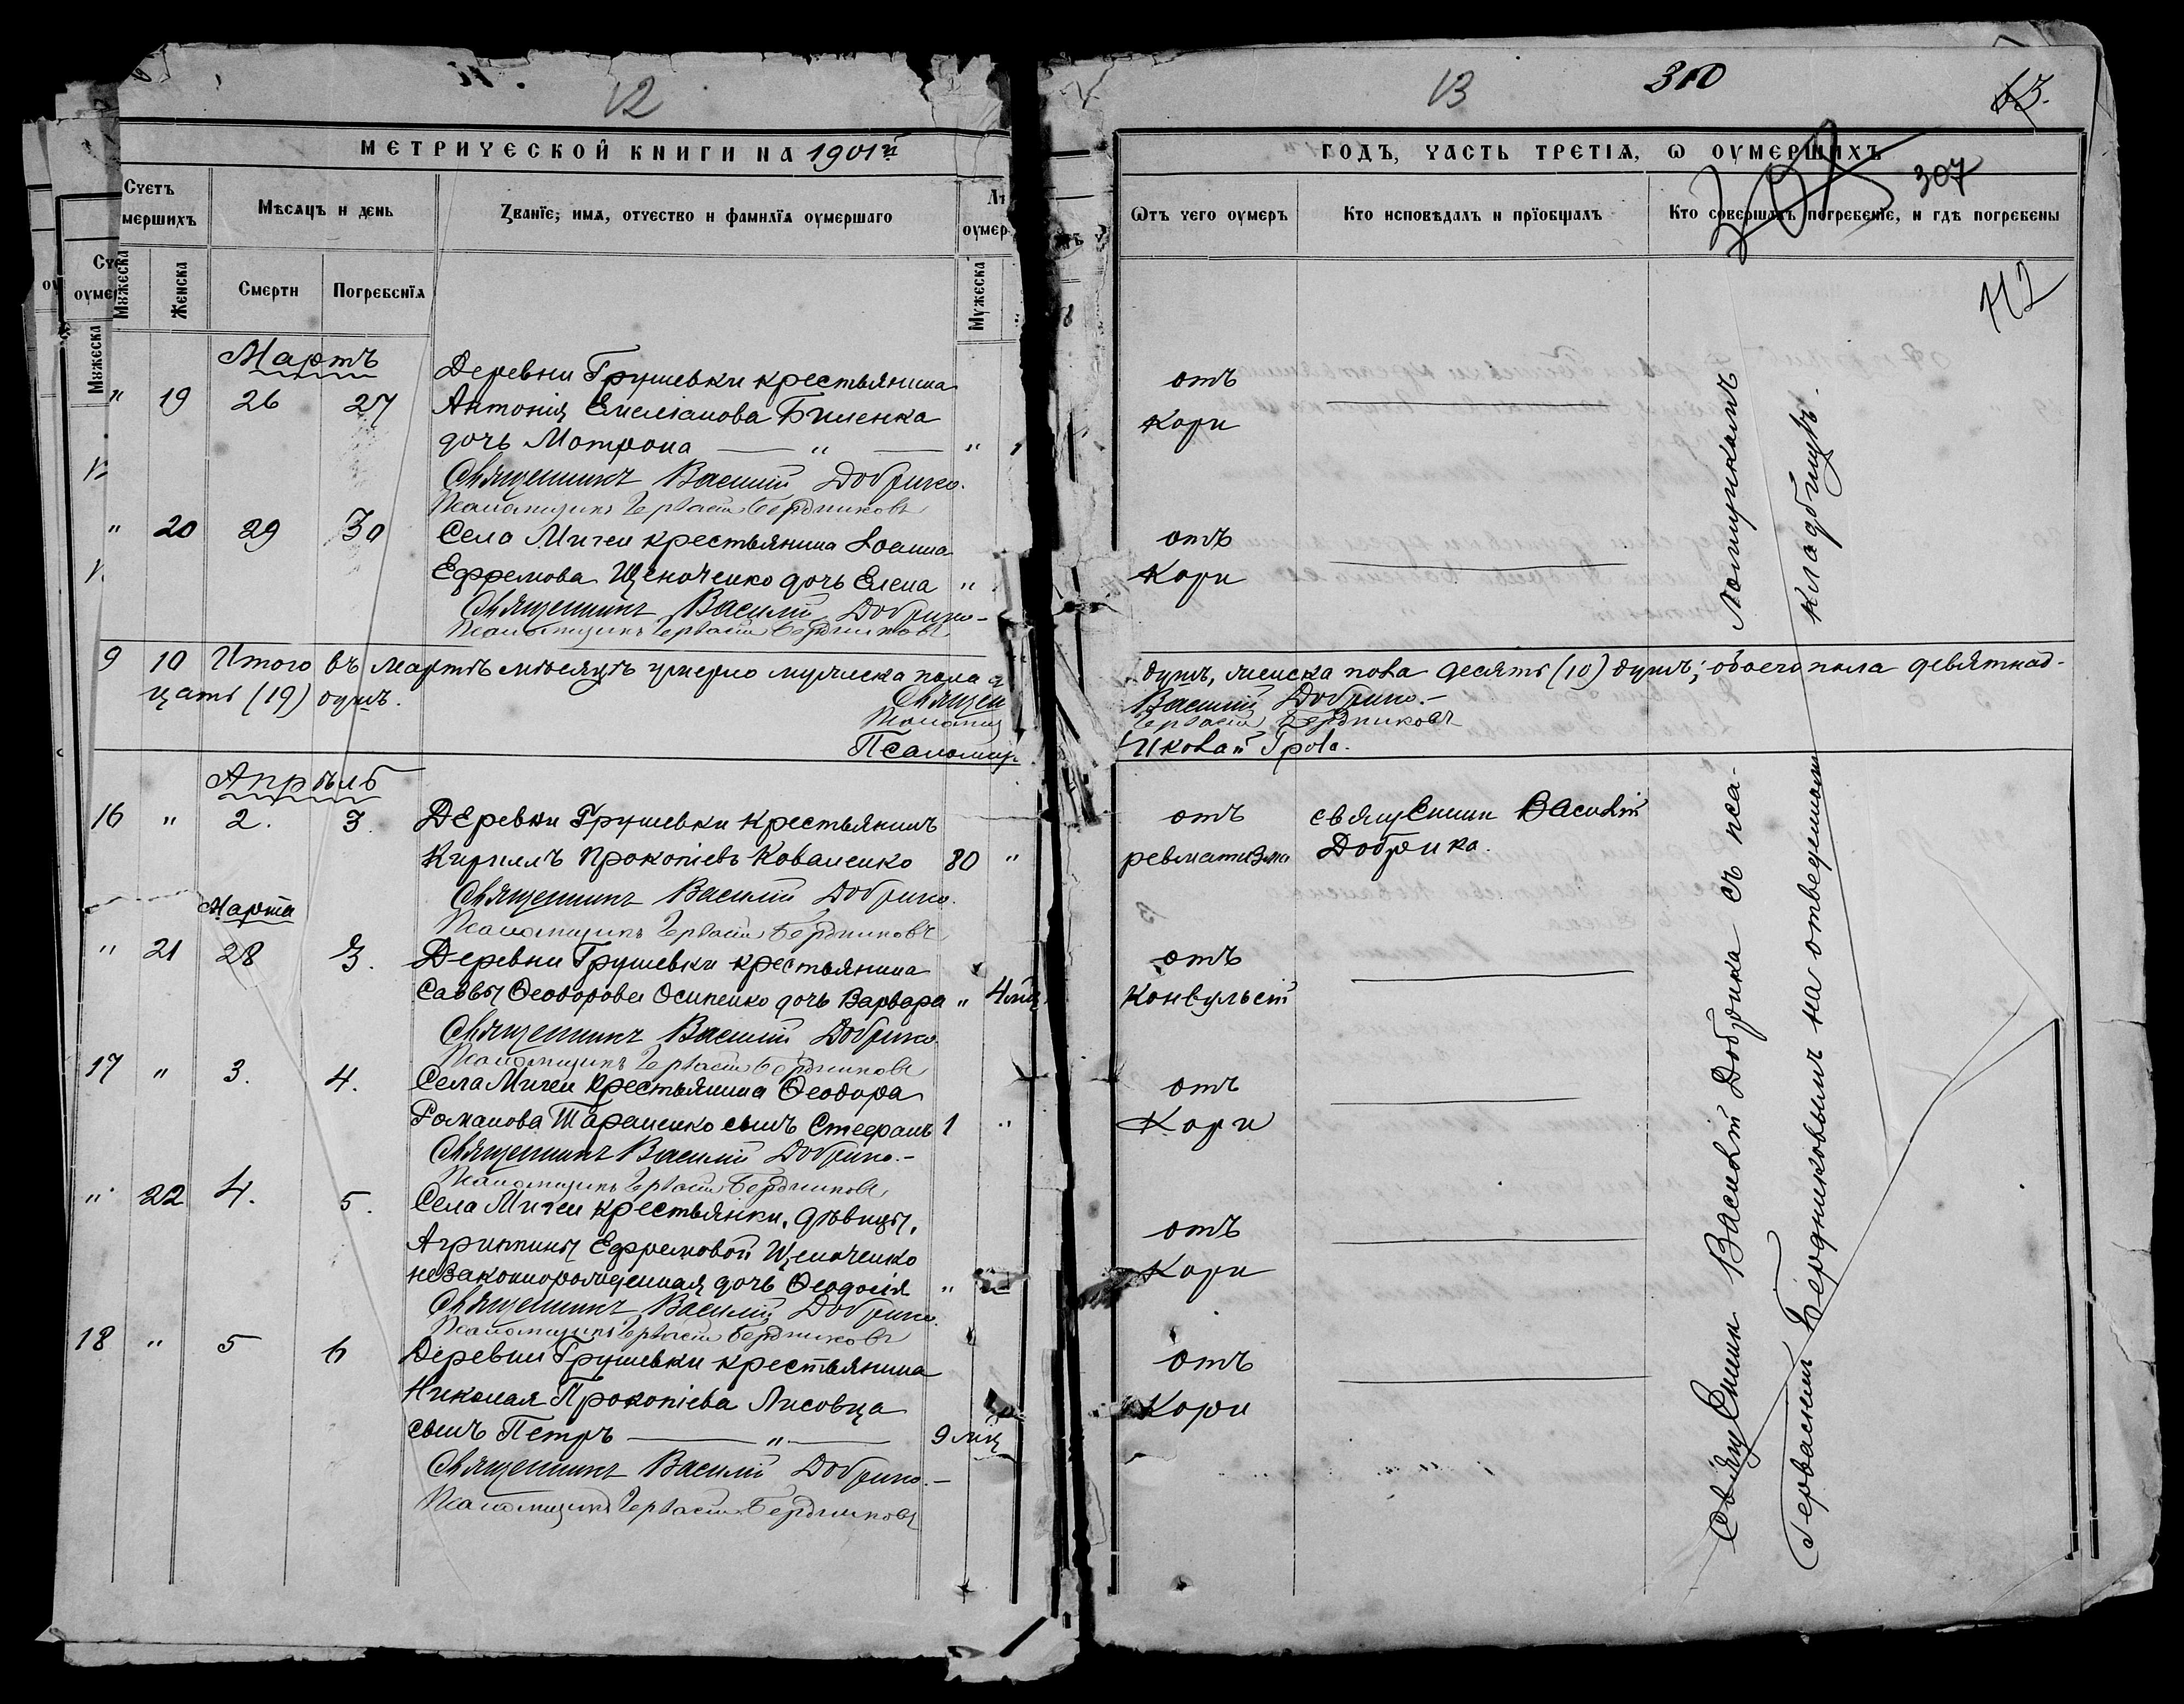 12
МЕТРИЧЕСКОЙ КНИГИ НА 1901й
Счетъ
мершихъ
Мѣсяцъ и день
Званїе, имя, отчество и фамилїя оумершаго
оумер
Мужеска
Женска
Смерти
Погребенїя
Мужеска
Мартъ
" 19 26 27
Деревни Грушевки крестьянина
Антонія Емеліанова Биленка
дочь Мотрона — " — "
Священникъ Василій Добрика.
Псаломщикъ Гервасій Бердниковъ
" 20 29 30
Села Мигеи крестьянина Іоанна
Ефремова Щеноченко дочь Елена "
Священникъ Василій Добрика
Псаломщикъ Гервасій Бердниковъ
9 10 Итого въ мартѣ мѣсяцѣ умерло мужеска пола
цать (19) душъ.
Священ
Псаломщ
Псаломщ
Апрѣль
16 " 2. 3.
Деревни Грушевки крестьянинъ
Кириллъ Прокопіевъ Коваленко 80 "
Священникъ Василій Добрика.
Псаломщикъ Гервасій Бердниковъ
Марта
" 21 28 3.
Деревни Грушевки крестьянина
Саввы Ѳеодорова Осипенко дочь Варвара " 4 мѣц
Священникъ Василій Добрика
Псаломщикъ Гервасій Бердниковъ
17 " 3. 4.
Села Мигеи крестьянина Ѳеодора
Романова Тараненко сынъ Стефанъ 1 "
Священникъ Василій Добрика.
Псаломщикъ Гервасій Бердниковъ
" 22 4. 5.
Села Мигеи крестьянки, дѣвицы,
Агриппины Ефремовой Щеноченко
незаконнорожденная дочь Ѳеодосія "
Священникъ Василій Добрика.
Псаломщикъ Гервасій Бердниковъ
18 " 5 6
Деревни Грушевки крестьянина
Николая Прокопіева Лисовца
сынъ Петръ — " — 9 мѣц
Священникъ Василій Добрика.
Псаломщикъ Гервасій Бердниковъ
13 310
ГОДЪ, ЧАСТЬ ТРЕТІЯ, Ѡ ОУМЕРШИХЪ
307
Ѿтъ чего оумеръ
Кто исповѣдалъ и прїобщалъ
Кто совершалъ погребенїе, и гдѣ погребены
112
отъ
Кори
отъ
Кори
душъ, женска пола десять (10) душъ; обоего пола девятнад-
Василій Добрика
Гервасій Бердниковъ
отъ
ревматизма
священник Василій
Добрика.
отъ
Конвульсій
отъ
Кори
отъ
Кори
отъ
Кори
Священник Василій Добрика съ пса-
ломщикомъ
Гервасіемъ Бердниковымъ на отведенномъ
кладбищѣ.